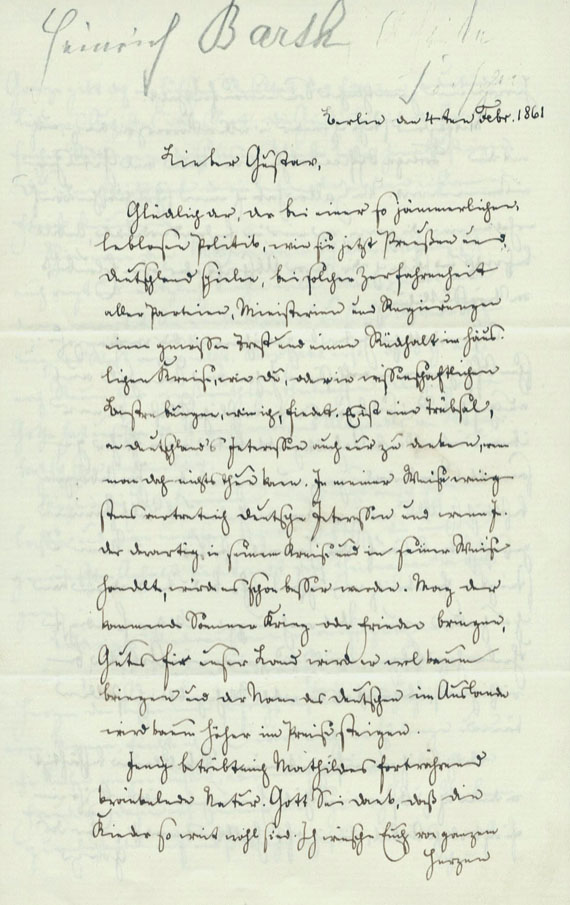 Heinrich Barth
Berlin an 4ten Febr. 1861
Lieber Gustav,
Glücklich der, der bei einer so jämmerlichen,
leblosen Politik, wie sie jetzt Preußen und
Deutschland spielen, bei solcher Zerfahrenheit
aller Parteien, Ministerien und Regierungen
einen gewissen Trost und einen Rückhalt im häus-
lichen Kreise, wie du, oder in wissenschaftlichen
Bestrebungen, wie ich, findet. Es ist eine Trübsal,
an Deutschland's Interessen auch nur zu denken, wenn
man doch nichts thun kann. In meiner Weise wenig-
stens vertrete ich deutsche Interessen und wenn Je-
der derartig in seinem Kreise und in seiner Weise
handelt, wird es schon besser werden. Mag der
kommende Sommer Krieg oder Frieden bringen,
Gutes für unser Land wird er wol kaum
bringen und der Name des Deutschen im Auslande
wird kaum höher im Preise steigen.
Innig betrübt mich Mathildes fortwährend
kränkelnde Natur. Gott sei dank, daß die
Kinder so weit wohl sind. Ich wünsche Euch von ganzem
Herzen